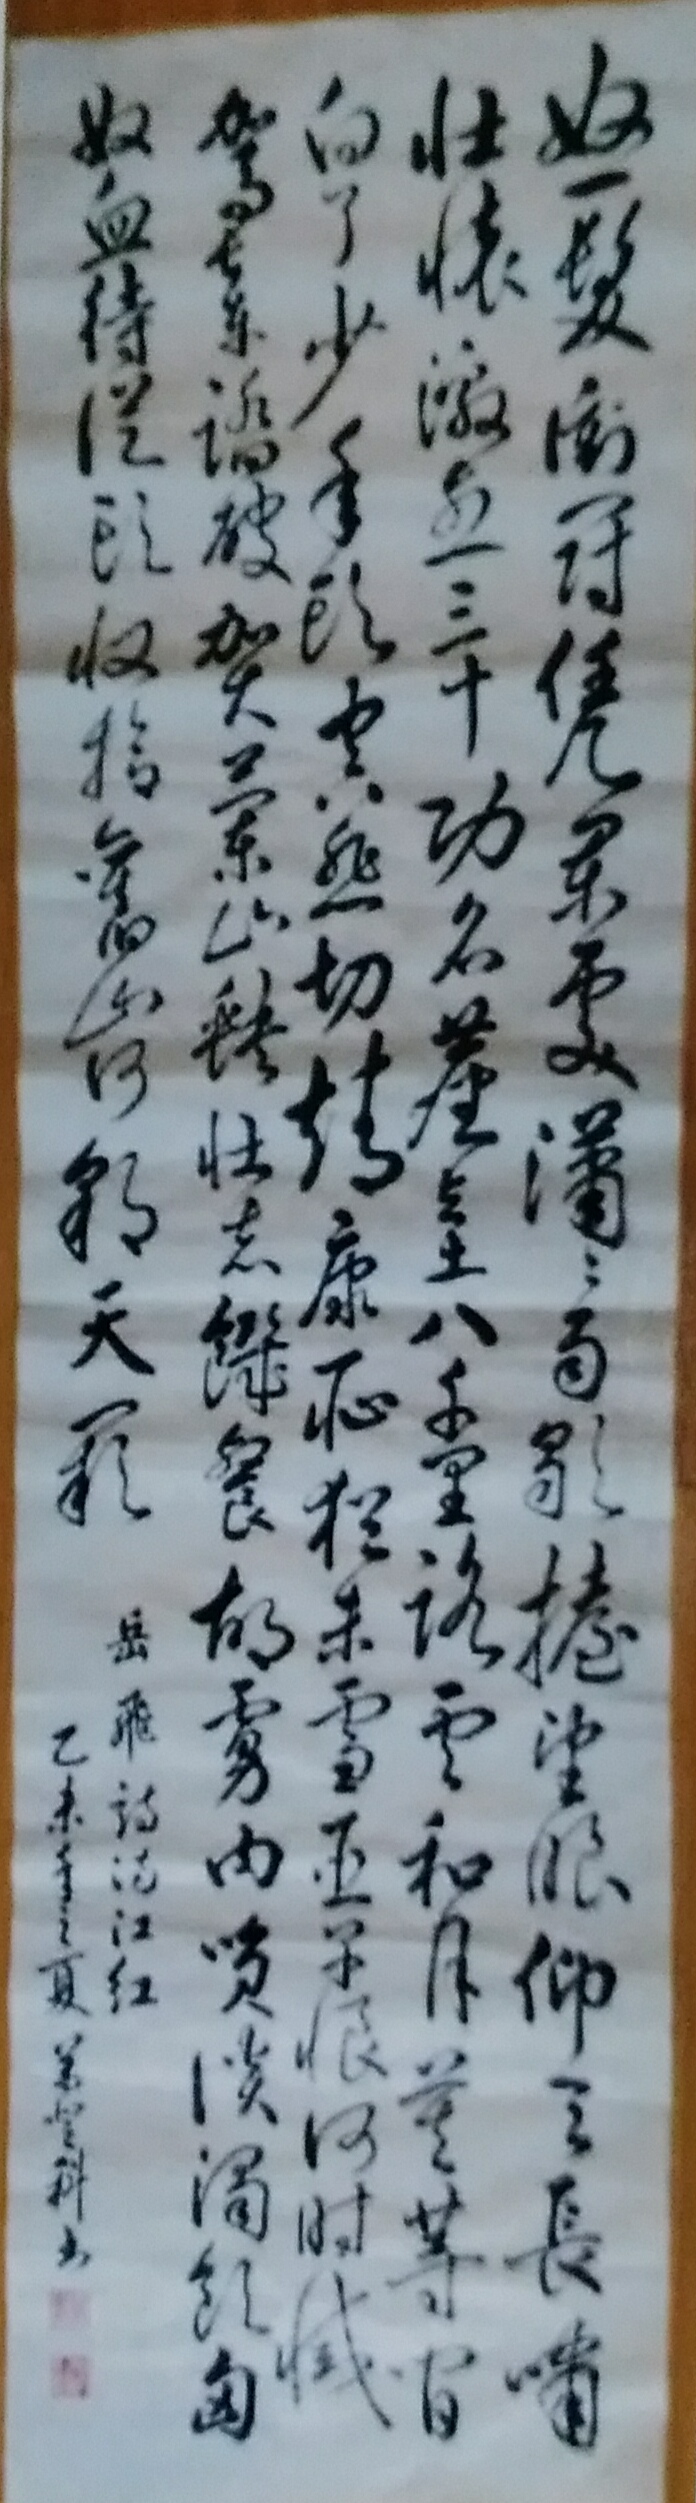 怒髮衝冠凭闌處瀟〻雨歇擡望眼仰天長嘯
壯懷激烈三十功名塵與土八千里路雲和月莫等閒
白了少年頭空悲切靖康恥猶未雪臣子恨何時滅
駕長車踏破賀蘭山缺壯志饑餐胡虜肉笑談渴飲匈
奴血待從頭收拾舊山河朝天闕
岳飛詩滿江紅
乙未年之夏 科書